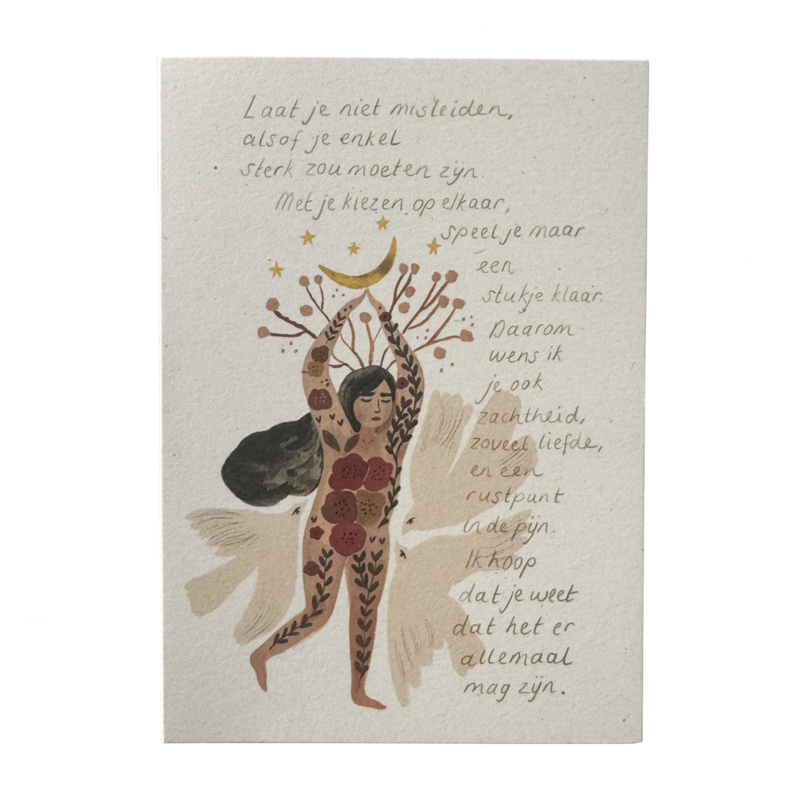 Laat je niet misleiden,
alsof je enkel
sterk zou moeten zijn.
Met je kiezen op elkaar,
speel je maar
één
stukje klaar.
Daarom
wens ik
je ook
zachtheid,
zoveel liefde,
en een
rustpunt
in de pijn.
Ik hoop
dat je weet
dat het er
allemaal
mag zijn.